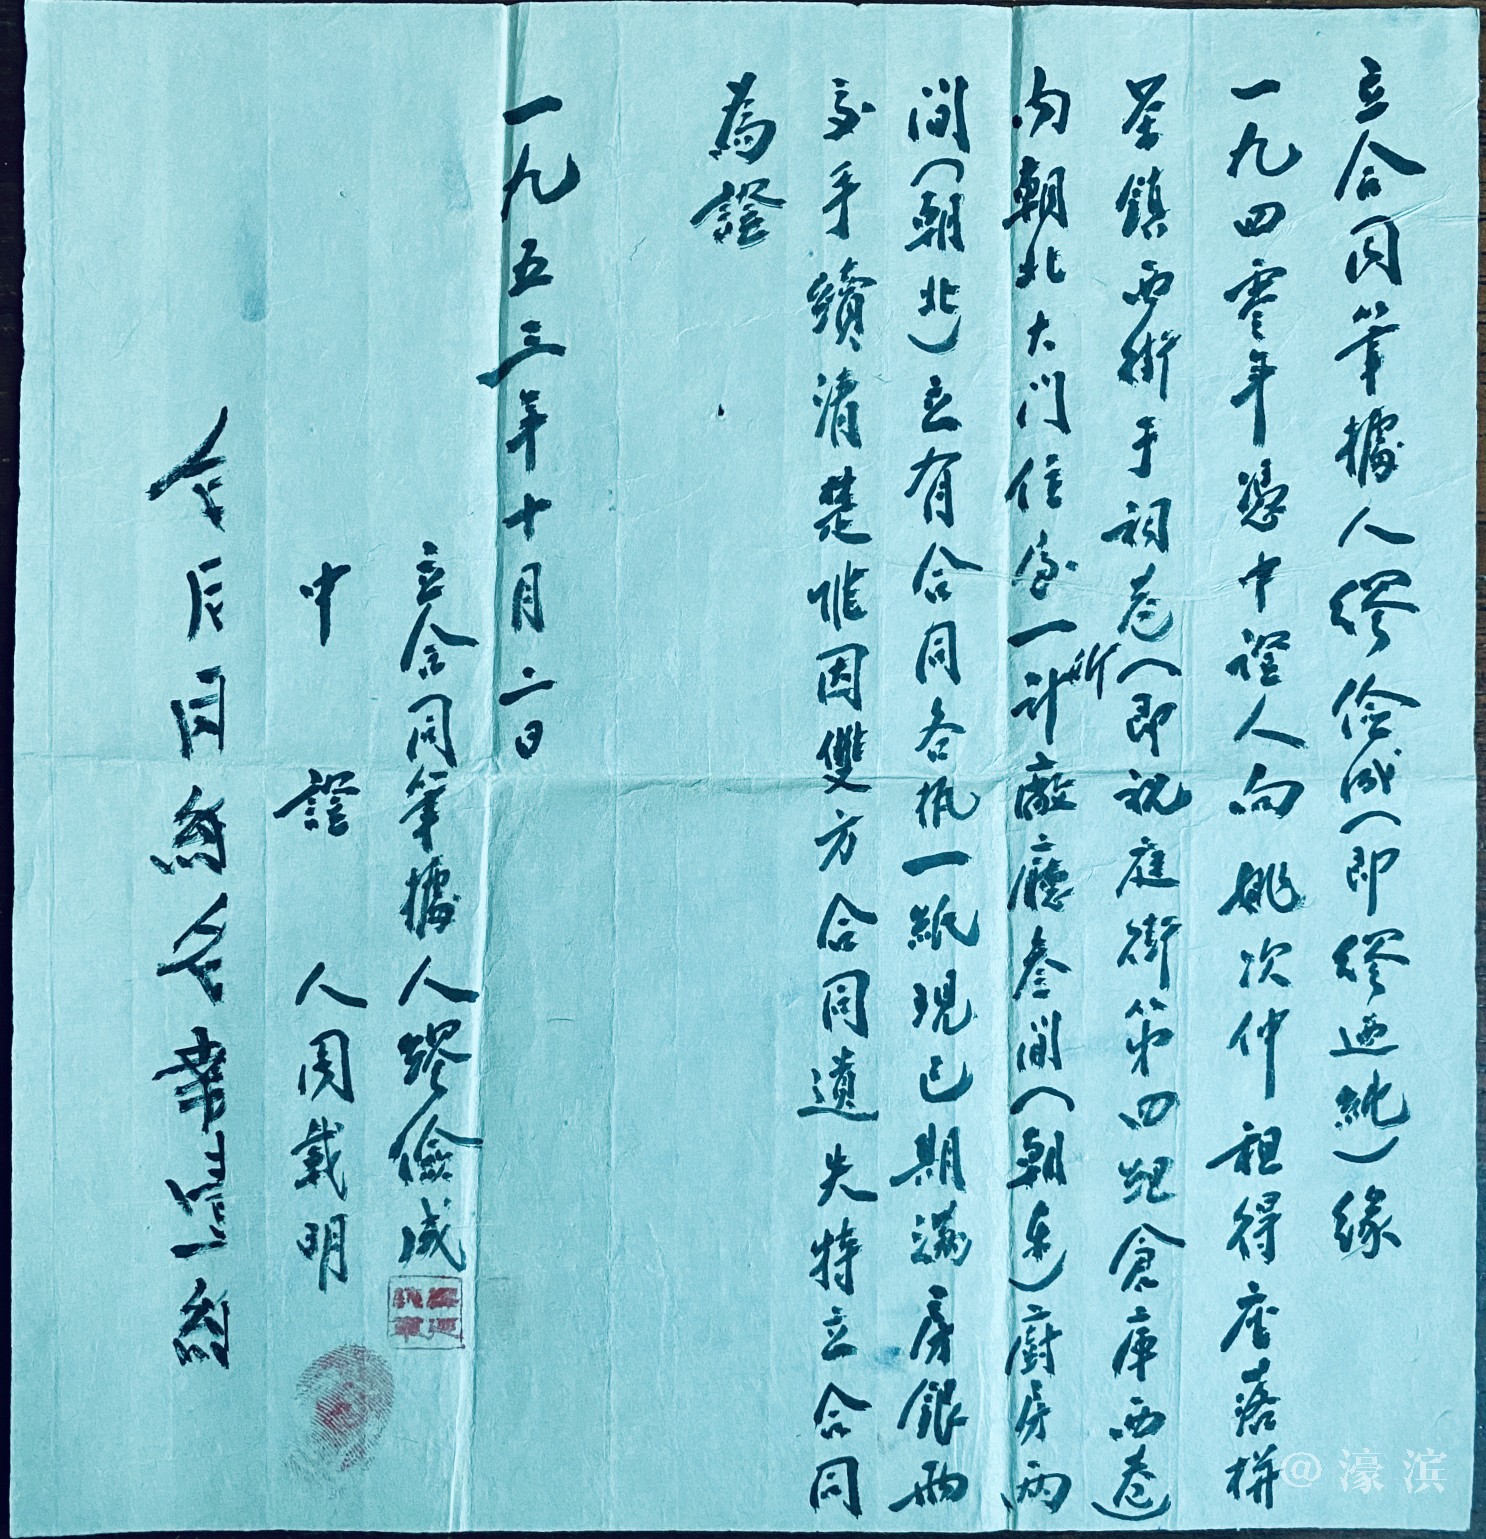 立合同筆據人繆儉成(即繆迺純)緣
一九四零年憑中證人向姚次仲租得座落栟
茶鎮西街于祠巷(即祝庭街第四糧倉庫西巷)
內朝北大門住宅一所計敞廳叁間(朝東)廚房兩
間(朝北)立有合同各執一紙現已期滿房銀兩
交手續清楚惟因雙方合同遺失特立合同
為證
一九五三年十月二日
立合同筆據人繆儉成
中證人周載明
@濠滨